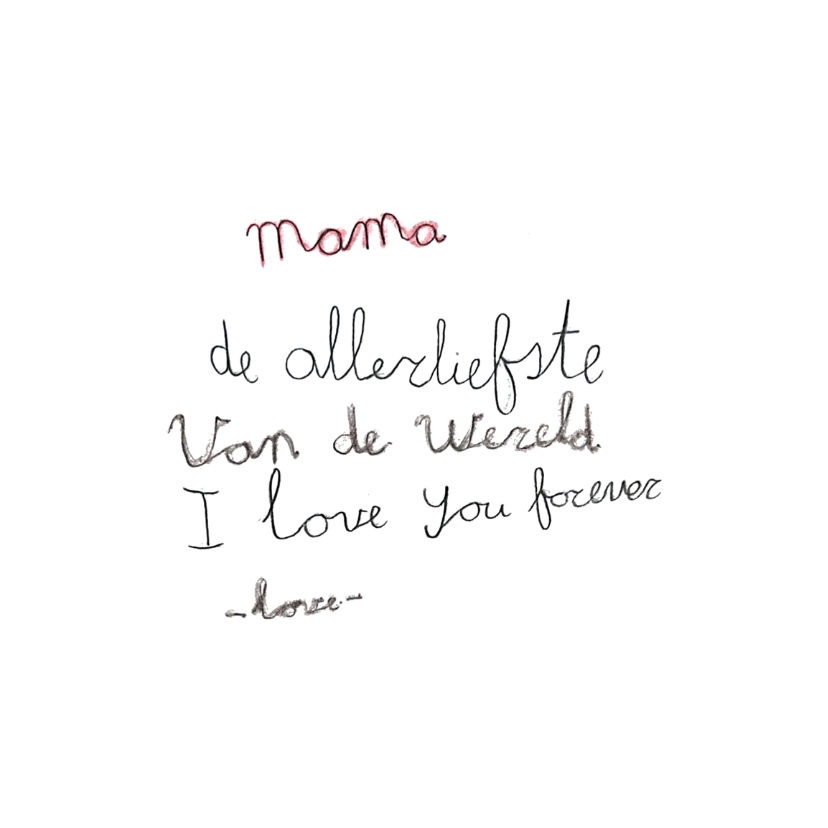 Mama
de allerliefste
Van de Wereld
I love you forever
-love-